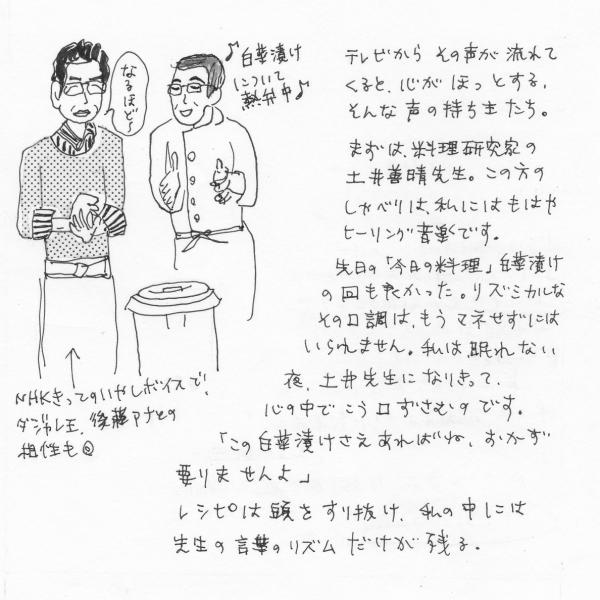 ♪白菜漬け
について
熱弁中♪
なるほど〜
テレビから その声が 流れて
くると、心が ほっとする、
そんな 声の持ち主たち。
まずは、料理研究家の
土井善晴先生。この方の
しゃべりは、私にはもはや
ヒーリング音楽です。
先日の「今日の料理」白菜漬け
の回も良かった。リズミカルな
その口調は、もう マネせずには
いられません。私は眠れない
夜、土井先生になりきって、
心の中でこう口ずさむのです。
「この白菜漬けさえあればね、おかず
要りませんよ」
レシピは頭をすり抜け、私の中には
先生の言葉のリズムだけが残る。
NHKきってのいやしボイスで、
ダジャレ王、後藤アナとの
相性も◎